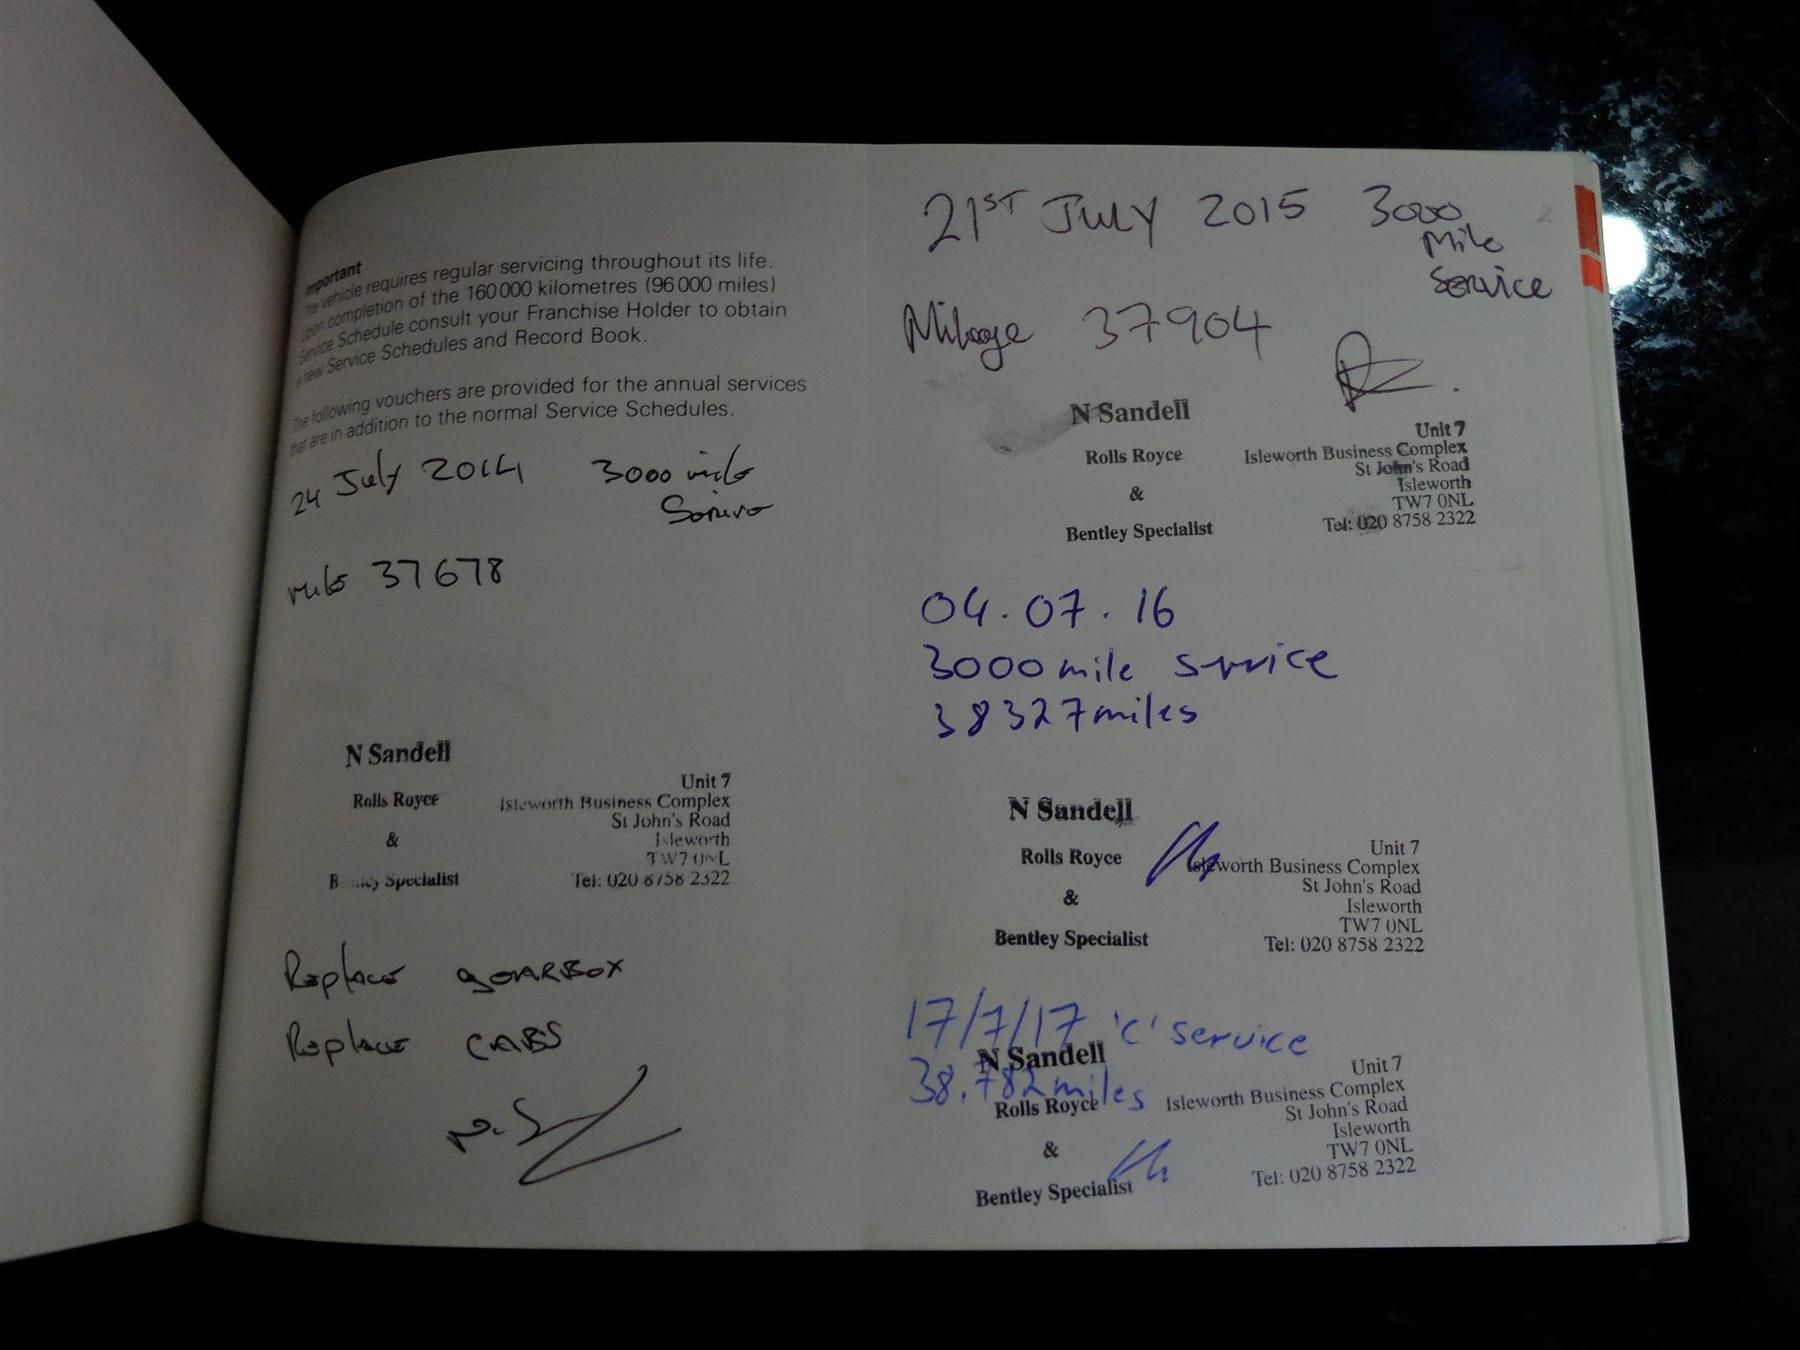 Important
The vehicle requires regular servicing throughout its life.
Upon completion of the 160 000 kilometres (96 000 miles)
Service Schedule consult your Franchise Holder to obtain
a new Service Schedules and Record Book.
The following vouchers are provided for the annual services
that are in addition to the normal Service Schedules.
24 July 2014 3000 mile
Service
mile 37678
N Sandell
Rolls Royce
&
Bentley Specialist
Unit 7
Isleworth Business Complex
St John's Road
Isleworth
TW7 0NL
Tel: 020 8758 2322
Replace GEARBOX
Replace
N.S
21ST July 2015 3000
Mile
Service
Mileage 37904
N Sandell
Rolls Royce
&
Bentley Specialist
Unit 7
Isleworth Business Complex
St John's Road
Isleworth
TW7 0NL
Tel: 020 8758 2322
04.07.16
3000 mile service
38327 miles
N Sandell
Rolls Royce
&
Bentley Specialist
Unit 7
Isleworth Business Complex
St John's Road
Isleworth
TW7 0NL
Tel: 020 8758 2322
17/7/17 'C' service
38.782 miles
N Sandell
Rolls Royce
&
Bentley Specialist
Unit 7
Isleworth Business Complex
St John's Road
Isleworth
TW7 0NL
Tel: 020 8758 2322